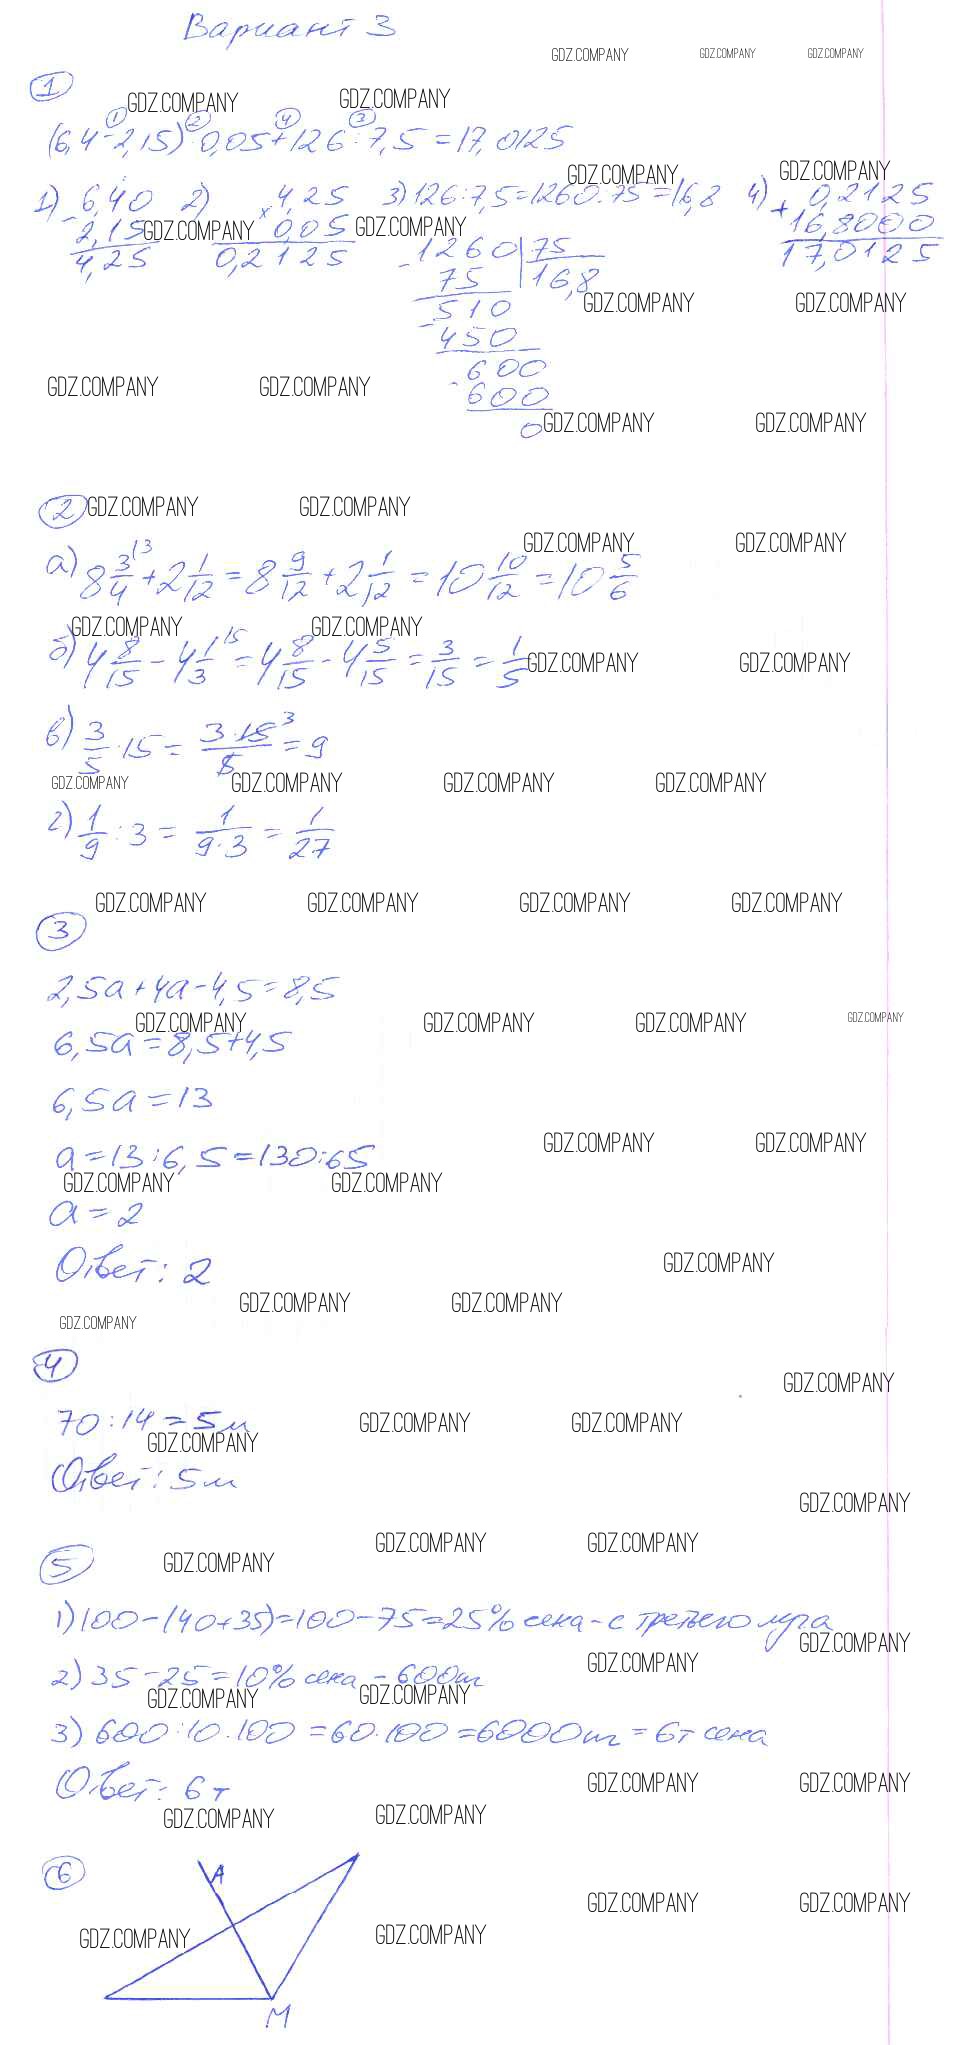 Вариант 3
GDZ.COMPANY GDZ.COMPANY GDZ.COMPANY
1
GDZ.COMPANY GDZ.COMPANY
1 2 4 3
(6,4-2,15)·0,05+126:7,5=17,0125
GDZ.COMPANY GDZ.COMPANY
1) 6,40 2) 4,25 3) 126:7,5=1260:75=16,8 4) 0,2125
- 2,15 × 0,05 + 16,8000
GDZ.COMPANY GDZ.COMPANY
4,25 0,2125 17,0125
- 1260 | 75
75 16,8
GDZ.COMPANY GDZ.COMPANY
510
- 450
600
GDZ.COMPANY GDZ.COMPANY
- 600
0
GDZ.COMPANY GDZ.COMPANY
2
GDZ.COMPANY GDZ.COMPANY
GDZ.COMPANY GDZ.COMPANY
а) 8 3/4 \3 + 2 1/12 = 8 9/12 + 2 1/12 = 10 10/12 = 10 5/6
GDZ.COMPANY GDZ.COMPANY
б) 4 8/15 - 4 1/3 \5 = 4 8/15 - 4 5/15 = 3/15 = 1/5
GDZ.COMPANY GDZ.COMPANY
в) 3/5 · 15 = 3·15/5 3 = 9
GDZ.COMPANY GDZ.COMPANY GDZ.COMPANY GDZ.COMPANY
г) 1/9 : 3 = 1/9·3 = 1/27
GDZ.COMPANY GDZ.COMPANY GDZ.COMPANY GDZ.COMPANY
3
2,5а+4а-4,5=8,5
GDZ.COMPANY GDZ.COMPANY GDZ.COMPANY GDZ.COMPANY
6,5а=8,5+4,5
6,5а=13
GDZ.COMPANY GDZ.COMPANY
а=13:6,5=130:65
GDZ.COMPANY GDZ.COMPANY
а=2
Ответ: 2
GDZ.COMPANY
GDZ.COMPANY GDZ.COMPANY
GDZ.COMPANY
4
GDZ.COMPANY
70:14=5м
GDZ.COMPANY GDZ.COMPANY
GDZ.COMPANY
Ответ: 5м
GDZ.COMPANY
GDZ.COMPANY GDZ.COMPANY
5
GDZ.COMPANY
1) 100-(40+35)=100-75=25% сена - с третьего луга
GDZ.COMPANY
GDZ.COMPANY
2) 35-25=10% сена - 600кг
GDZ.COMPANY GDZ.COMPANY
3) 600:10·100=60·100=6000кг=6т сена
Ответ: 6т
GDZ.COMPANY GDZ.COMPANY
GDZ.COMPANY GDZ.COMPANY
6
А
GDZ.COMPANY GDZ.COMPANY
GDZ.COMPANY GDZ.COMPANY
М